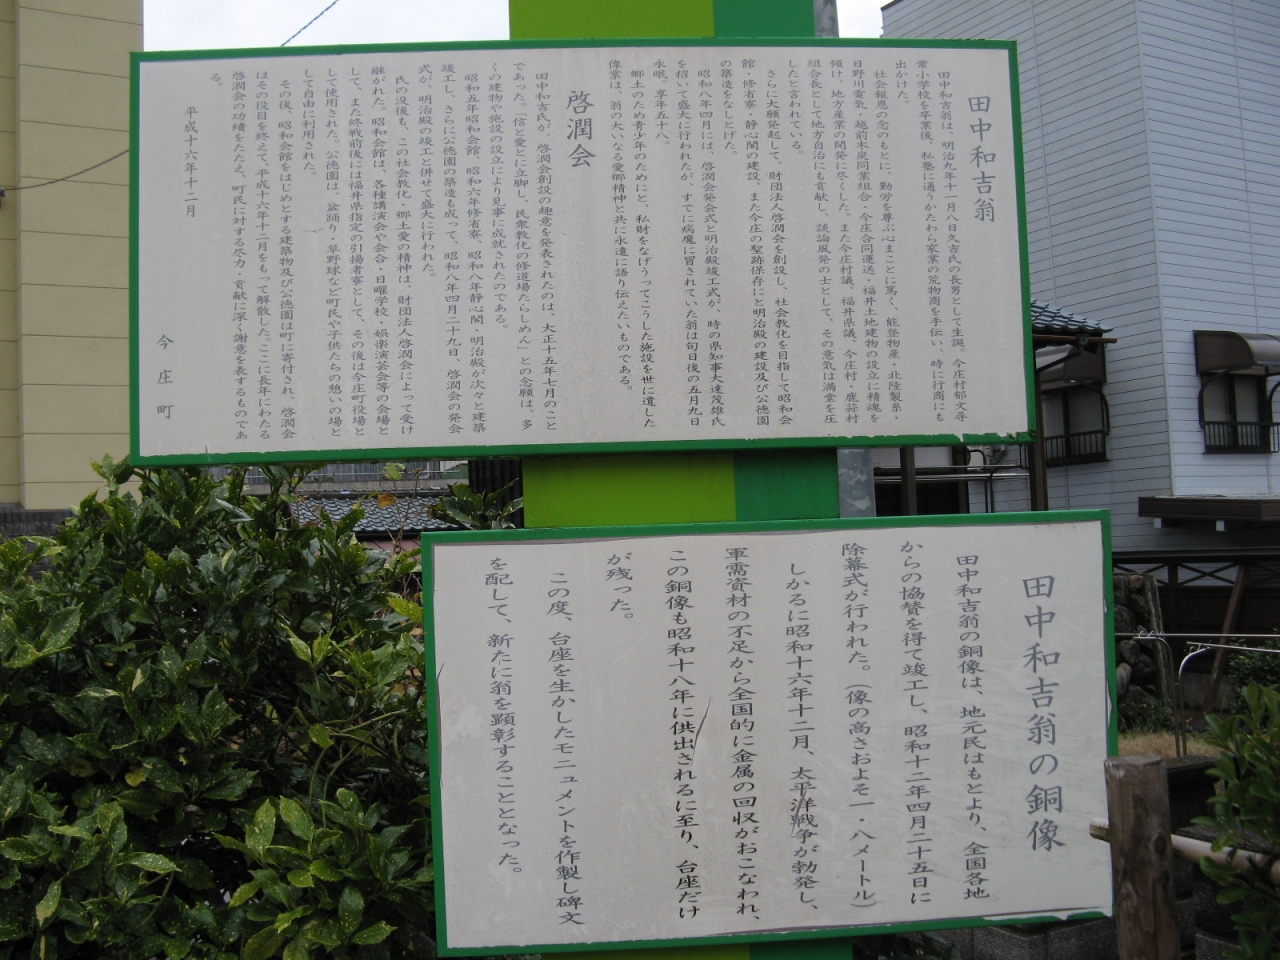 田中和吉翁
田中和吉翁は、明治九年十一月八日久吉氏の長男として生誕。今庄村郁文尋
常小学校を卒業後、私塾に通うかたわら家業の荒物商を手伝い、時に行商にも
出かけた。
社会報恩の念のもとに、勤労を尊ぶ心まことに篤く、能登物産・北陸製糸・
日野川電気・越前木炭同業組合・今庄合同運送・福井土地建物の設立に精魂を
傾け、地方産業の開発に尽くした。また今庄村議、福井県議、今庄村・鹿蒜村
組合長として地方自治にも貢献し、談論風発の士として、その意気は満堂を圧
したと言われている。
さらに大願発起して、財団法人啓潤会を創設し、社会教化を目指して昭和会
館・修省寮・静心閣の建設、また今庄の聖跡保存にと明治殿の建設及び公徳園
の築造をなしとげた。
昭和八年四月には、啓潤会発会式と明治殿竣工式が、時の県知事大達茂雄氏
を招いて盛大に行われたが、すでに病魔に冒されていた翁は旬日後の五月九日
永眠。享年五十八。
郷土のため青少年のためにと、私財をなげうってこうした施設を世に遺した
偉業は、翁の大いなる愛郷精神と共に永遠に語り伝えたいものである。
啓潤会
田中和吉氏が、啓潤会創設の趣意を発表されたのは、大正十五年七月のこと
であった。「信と愛とに立脚し、民衆教化の修道場たらしめん」との念願は、多
くの建物や施設の設立により見事に成就されたのである。
昭和五年昭和会館、昭和六年修省寮、昭和八年静心閣・明治殿が次々と建築
竣工し、さらに公徳園の築造も成って、昭和八年四月二十九日、啓潤会の発会
式が、明治殿の竣工と併せて盛大に行われた。
氏の没後も、この社会教化・郷土愛の精神は、財団法人啓潤会によって受け
継がれた。昭和会館は、各種講演会や会合・日曜学校・娯楽演芸会等の会場と
して、また終戦前後には福井県指定の引揚者寮として、その後は今庄町役場と
して使用された。公徳園は、盆踊り・草野球など町民や子供たちの憩いの場と
して自由に利用された。
その後、昭和会館をはじめとする建築物及び公徳園は町に寄付され、啓潤会
はその役目を終えて、平成十六年十二月をもって解散した。ここに長年にわたる
啓潤会の功績をたたえ、町民に対する尽力・貢献に深く謝意を表するものであ
る。
平成十六年十二月
今庄町
田中和吉翁の銅像
田中和吉翁の銅像は、地元民はもとより、全国各地
からの協賛を得て竣工し、昭和十二年四月二十五日に
除幕式が行われた。（像の高さおよそ一・八メートル）
しかるに昭和十六年十二月、太平洋戦争が勃発し、
軍需資材の不足から全国的に金属の回収がおこなわれ、
この銅像も昭和十八年に供出されるに至り、台座だけ
が残った。
この度、台座を生かしたモニュメントを作製し碑文
を配して、新たに翁を顕彰することとなった。